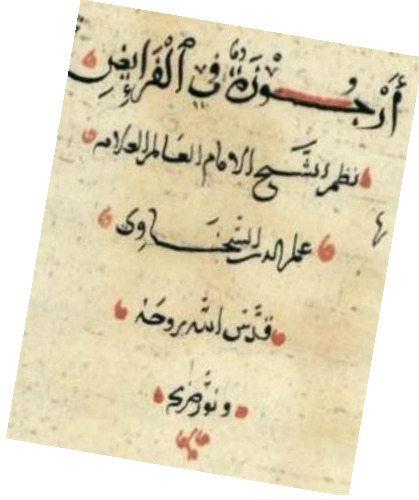 أرجوزة في الفرائض
نظم الشيخ الامام العالم العلامه
علم الدين السخاوى
قدس الله روحه
ونور ضريحه